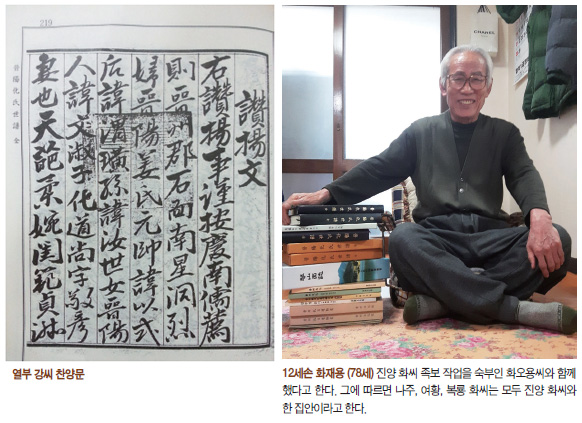 219
讚揚文
右讚揚事謹按慶南儒薦
則晉州郡 面南星洞烈
婦晉陽姜氏元帥諱以式
后諱渭璜孫諱汝世女晉陽
人諱文淑子化道尚字敬彦
妻也天葩柔婉閨範貞淑
晉陽化氏世譜 全
CHANEL
열부 강씨 찬양문
12세손 화재용 (78세) 진양 화씨 족보 작업을 숙부인 화오용씨와 함께
했다고 한다. 그에 따르면 나주, 여황, 복룡 화씨는 모두 진양 화씨와
한 집안이라고 한다.